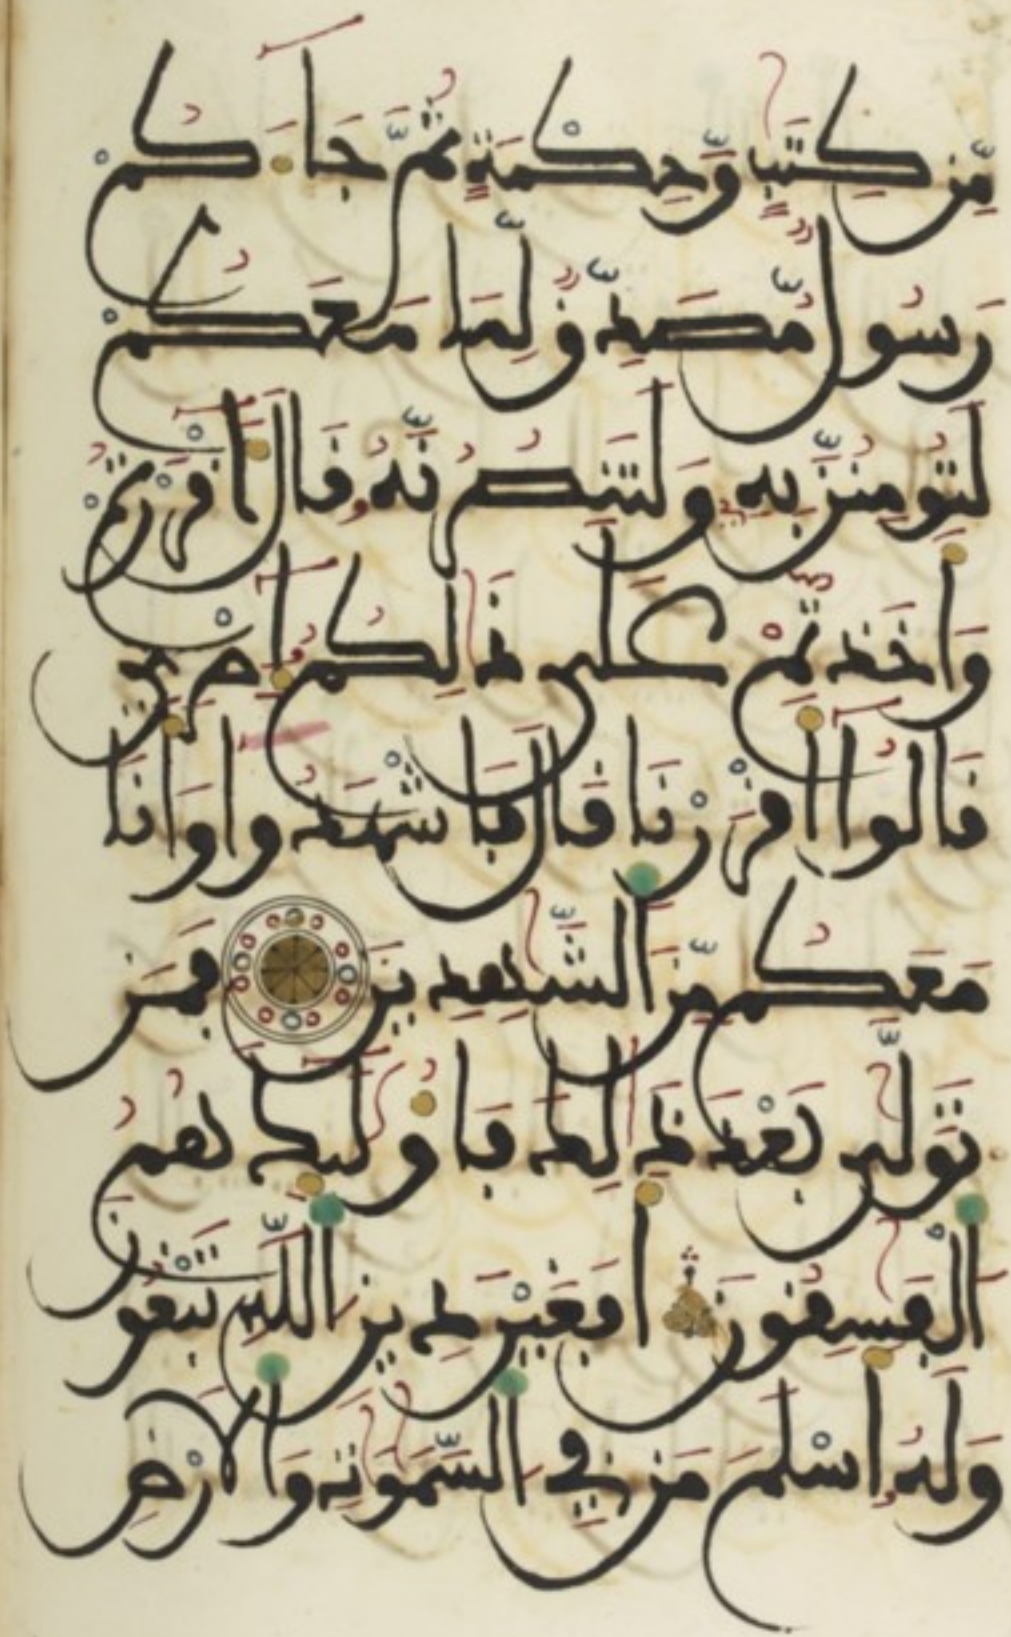 مِّن كِتَٰبٍ وَحِكْمَةٍ ثُمَّ جَآءَكُمْ
رَسُولٌ مُّصَدِّقٌ لِّمَا مَعَكُمْ
لَتُومِنُنَّ بِهِ وَلَتَنصُرُنَّهُ قَالَ ءَآقْرَرْتُمْ
وَأَخَذتُّمْ عَلَىٰ ذَٰلِكُمُۥٓ إِصْرِي
قَالُوٓا أَقْرَرْنَا قَالَ فَاشْهَدُوا وَأَنَا
مَعَكُم مِّنَ الشَّٰهِدِينَ فَمَن
تَوَلَّىٰ بَعْدَ ذَٰلِكَ فَأُوْلَٰٓئِكَ هُمُ
الْفَٰسِقُونَ أَفَغَيْرَ دِينِ اللَّهِ تَبْغُونَ
وَلَهُ أَسْلَمَ مَن فِي السَّمَٰوَٰتِ وَالْأَرْضِ